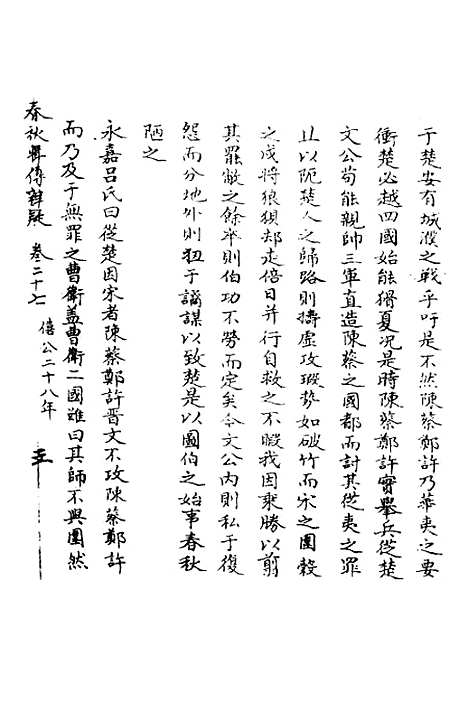 于楚安有城濮之戰乎吁是不然陳蔡鄭許乃華夷之要
衝楚必越四國始能猾夏況是時陳蔡鄭許實舉兵從楚
文公苟能親帥三軍直造陳蔡之國都而討其從夷之罪
且以阨楚人之歸路則擣虛攻瑕勢如破竹而宋之圍穀
之戍將狼狽却走倍日并行自救之不暇我因乘勝以翦
其罷敝之餘卒則伯功不勞而定矣今文公内則私于復
怨而分地外則狃于譎謀以致楚是以圖伯之始事春秋
陋之
永嘉呂氏曰從楚圍宋者陳蔡鄭許晋文不攻陳蔡鄭許
而乃及于無罪之曹衛盖曹衛二國雖曰其師不與圍然
春秋輯傳辨疑 卷二十七 僖公二十八年 五